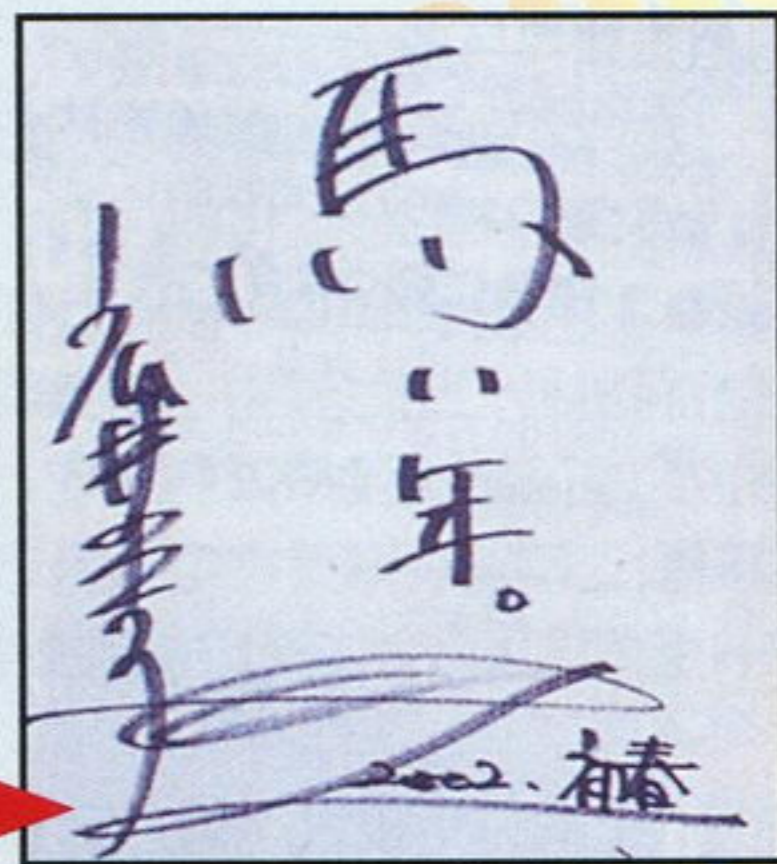 馬い年。
2002.初春